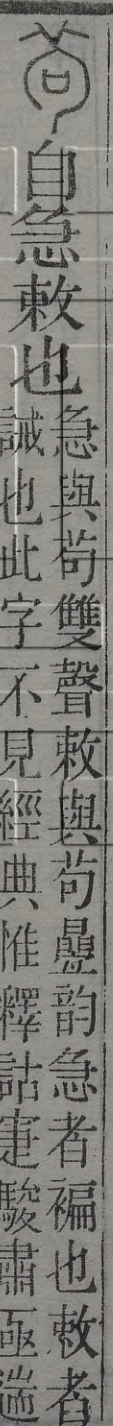 茍自急敕也
急與茍雙聲敕與茍㬪韵急者褊也敕者
誡也此字不見經典惟釋詁寁駿肅亟遄